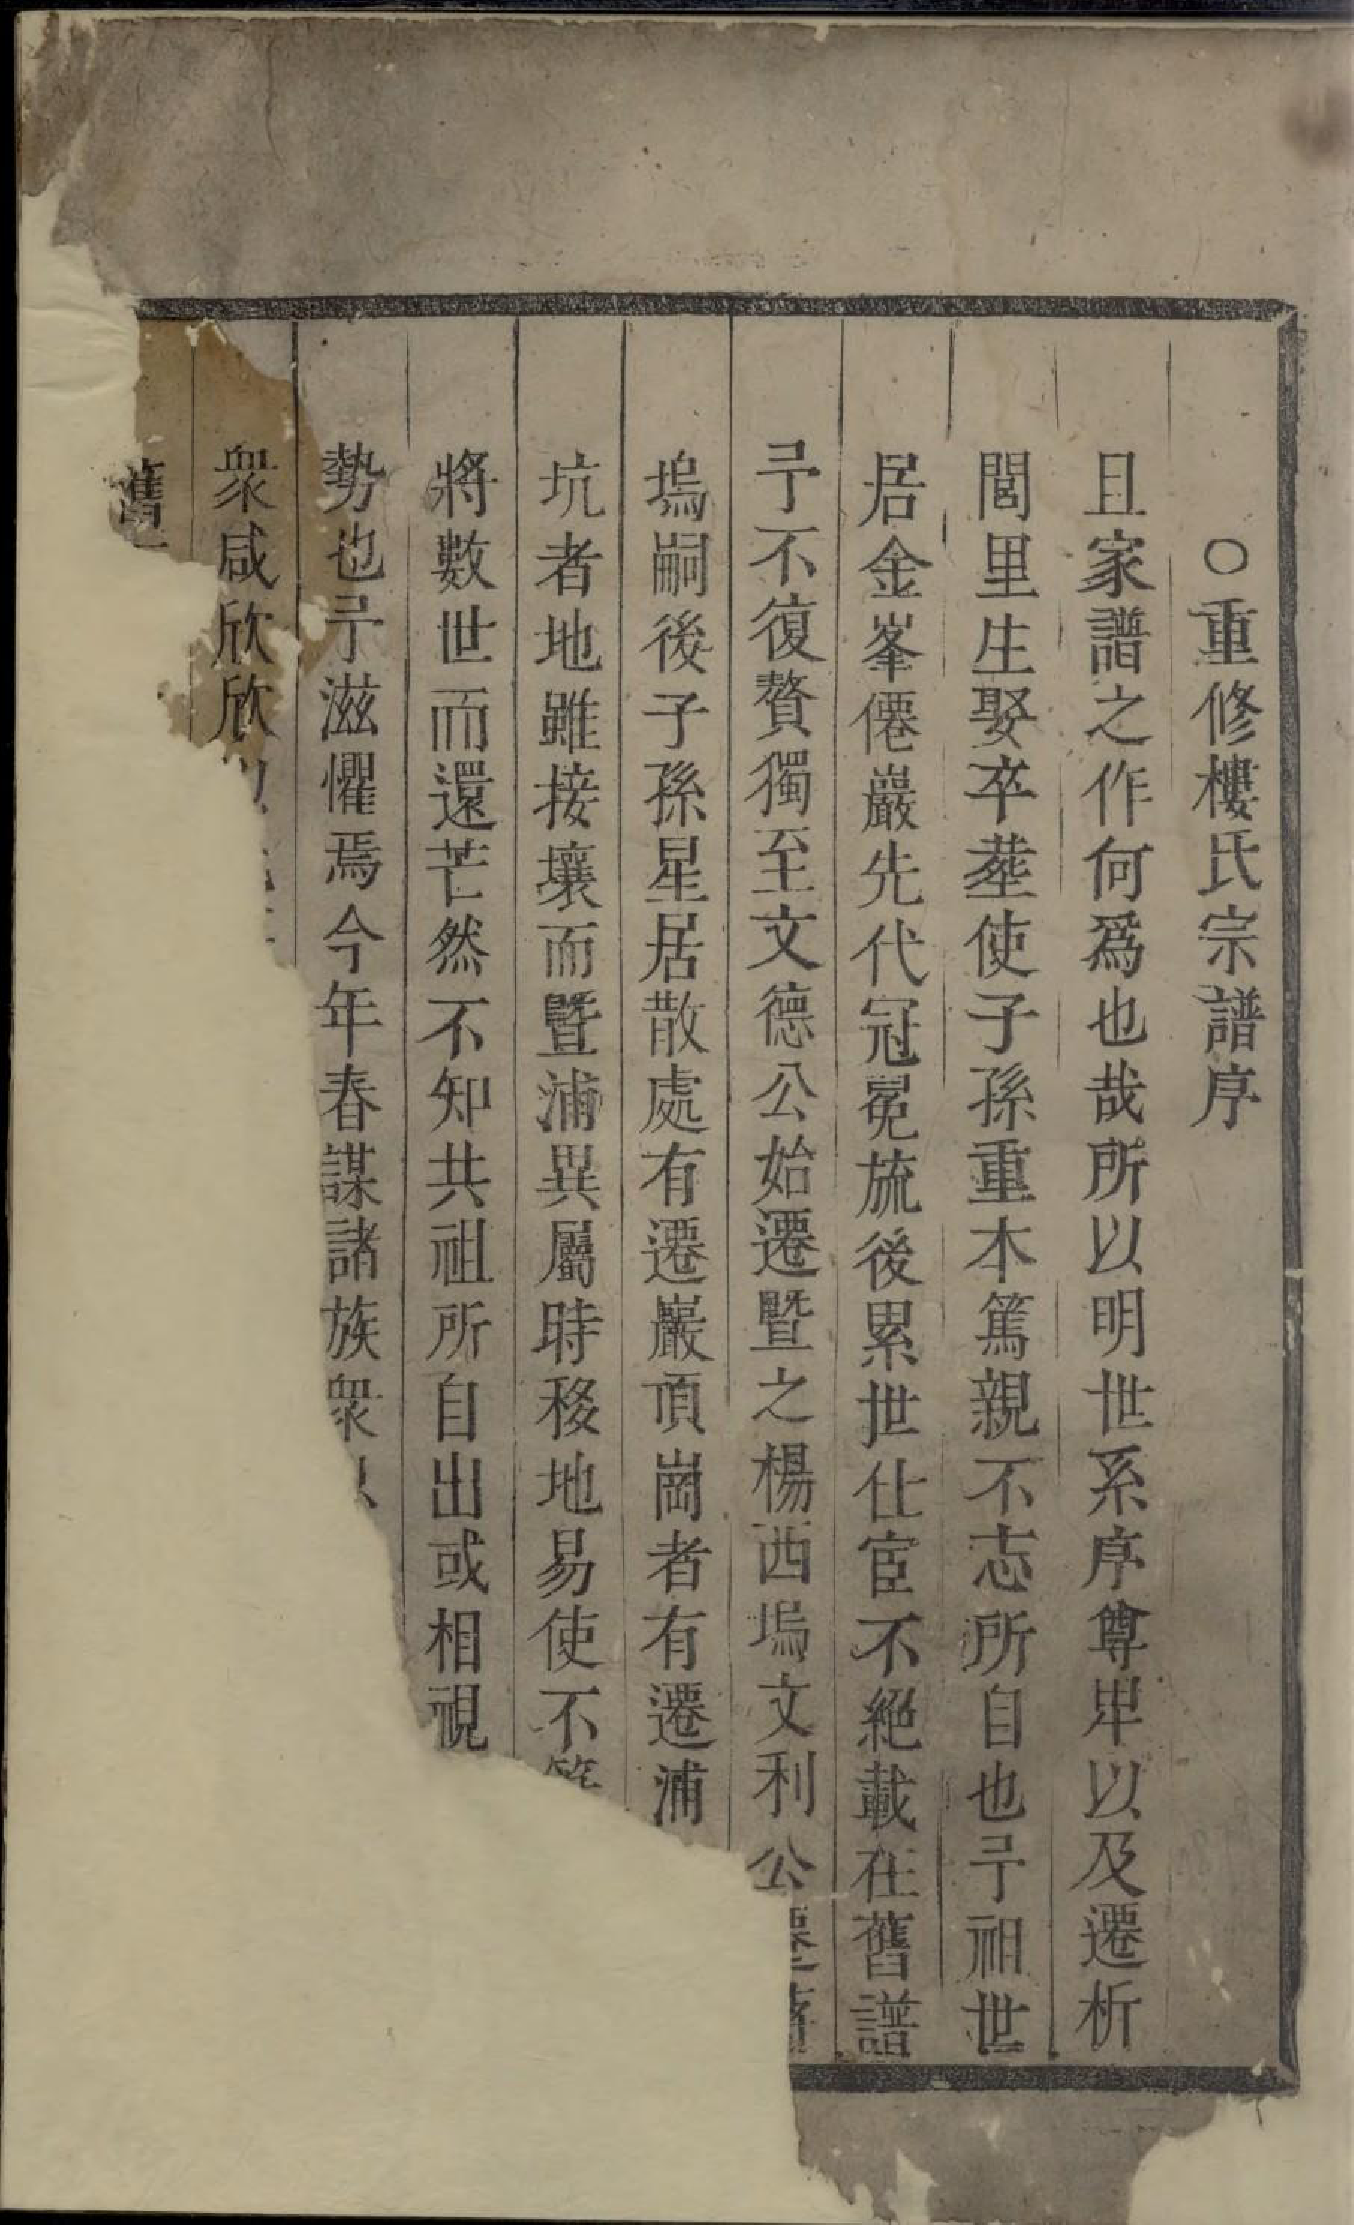 ○重修樓氏宗譜序
且家譜之作何爲也哉所以明世系序尊卑以及遷析
閭里生娶卒塟使子孫重本篤親不忘所自也予祖世
居金峯僊巖先代冠冕旒後累世仕宦不絕載在舊譜
予不復贅獨至文德公始遷暨之楊西塢文利公遷
塢嗣後子孫星居散處有遷巖頂崗者有遷浦
坑者地雖接壤而暨浦異屬時移地易使不
將數世而還芒然不知共祖所自出或相視
勢也予滋懼焉今年春謀諸族衆
衆咸欣欣
舊